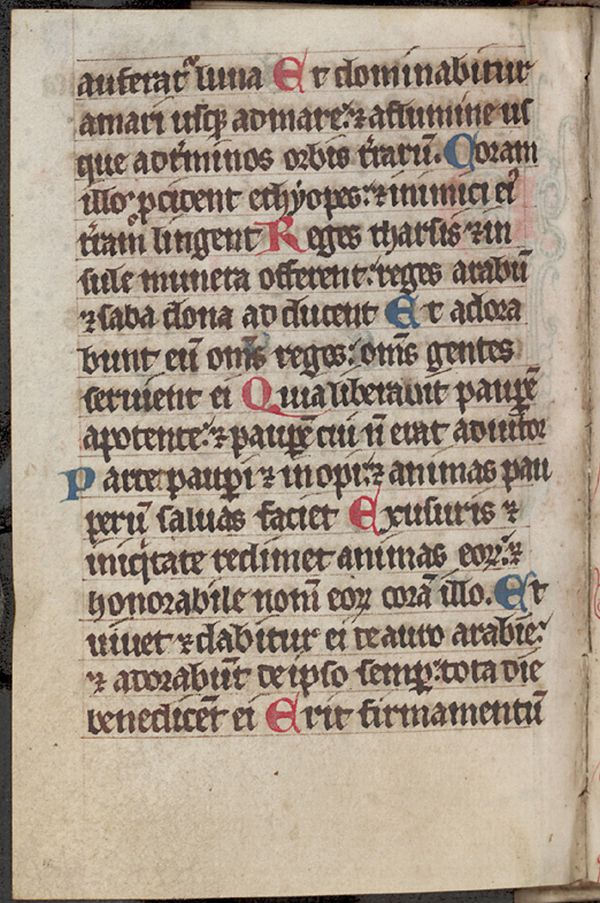 auferat᷑ luna Et dominabitur
amari usq; ad mare: ⁊ a flumine us
que ad t̉minos orbis t̉rarū. Coram
illo p̱cident ethyopes: ⁊ inimici ei᷒
t̉ram lingent Reges tharsis ⁊ in
sule munera offerent: reges arabū
⁊ saba dona adducent Et adora
bunt eū om̄s reges: om̄s gentes
seruient ei Quia liberabit paup̱ē
a potente: ⁊ paup̱ē cui n̄ erat adiutor
Parcet paup̱i ⁊ inopi: ⁊ animas pau
perū saluas faciet Ex usuris ⁊
iniq̇tate redimet animas eoꝝ: ⁊
honorabile nom̄ eoꝝ corā illo. Et
uiuet ⁊ dabitur ei de auro arabie:
⁊ adorabūt de ipso semp̱: tota die
benedicēt ei Erit firmamentū